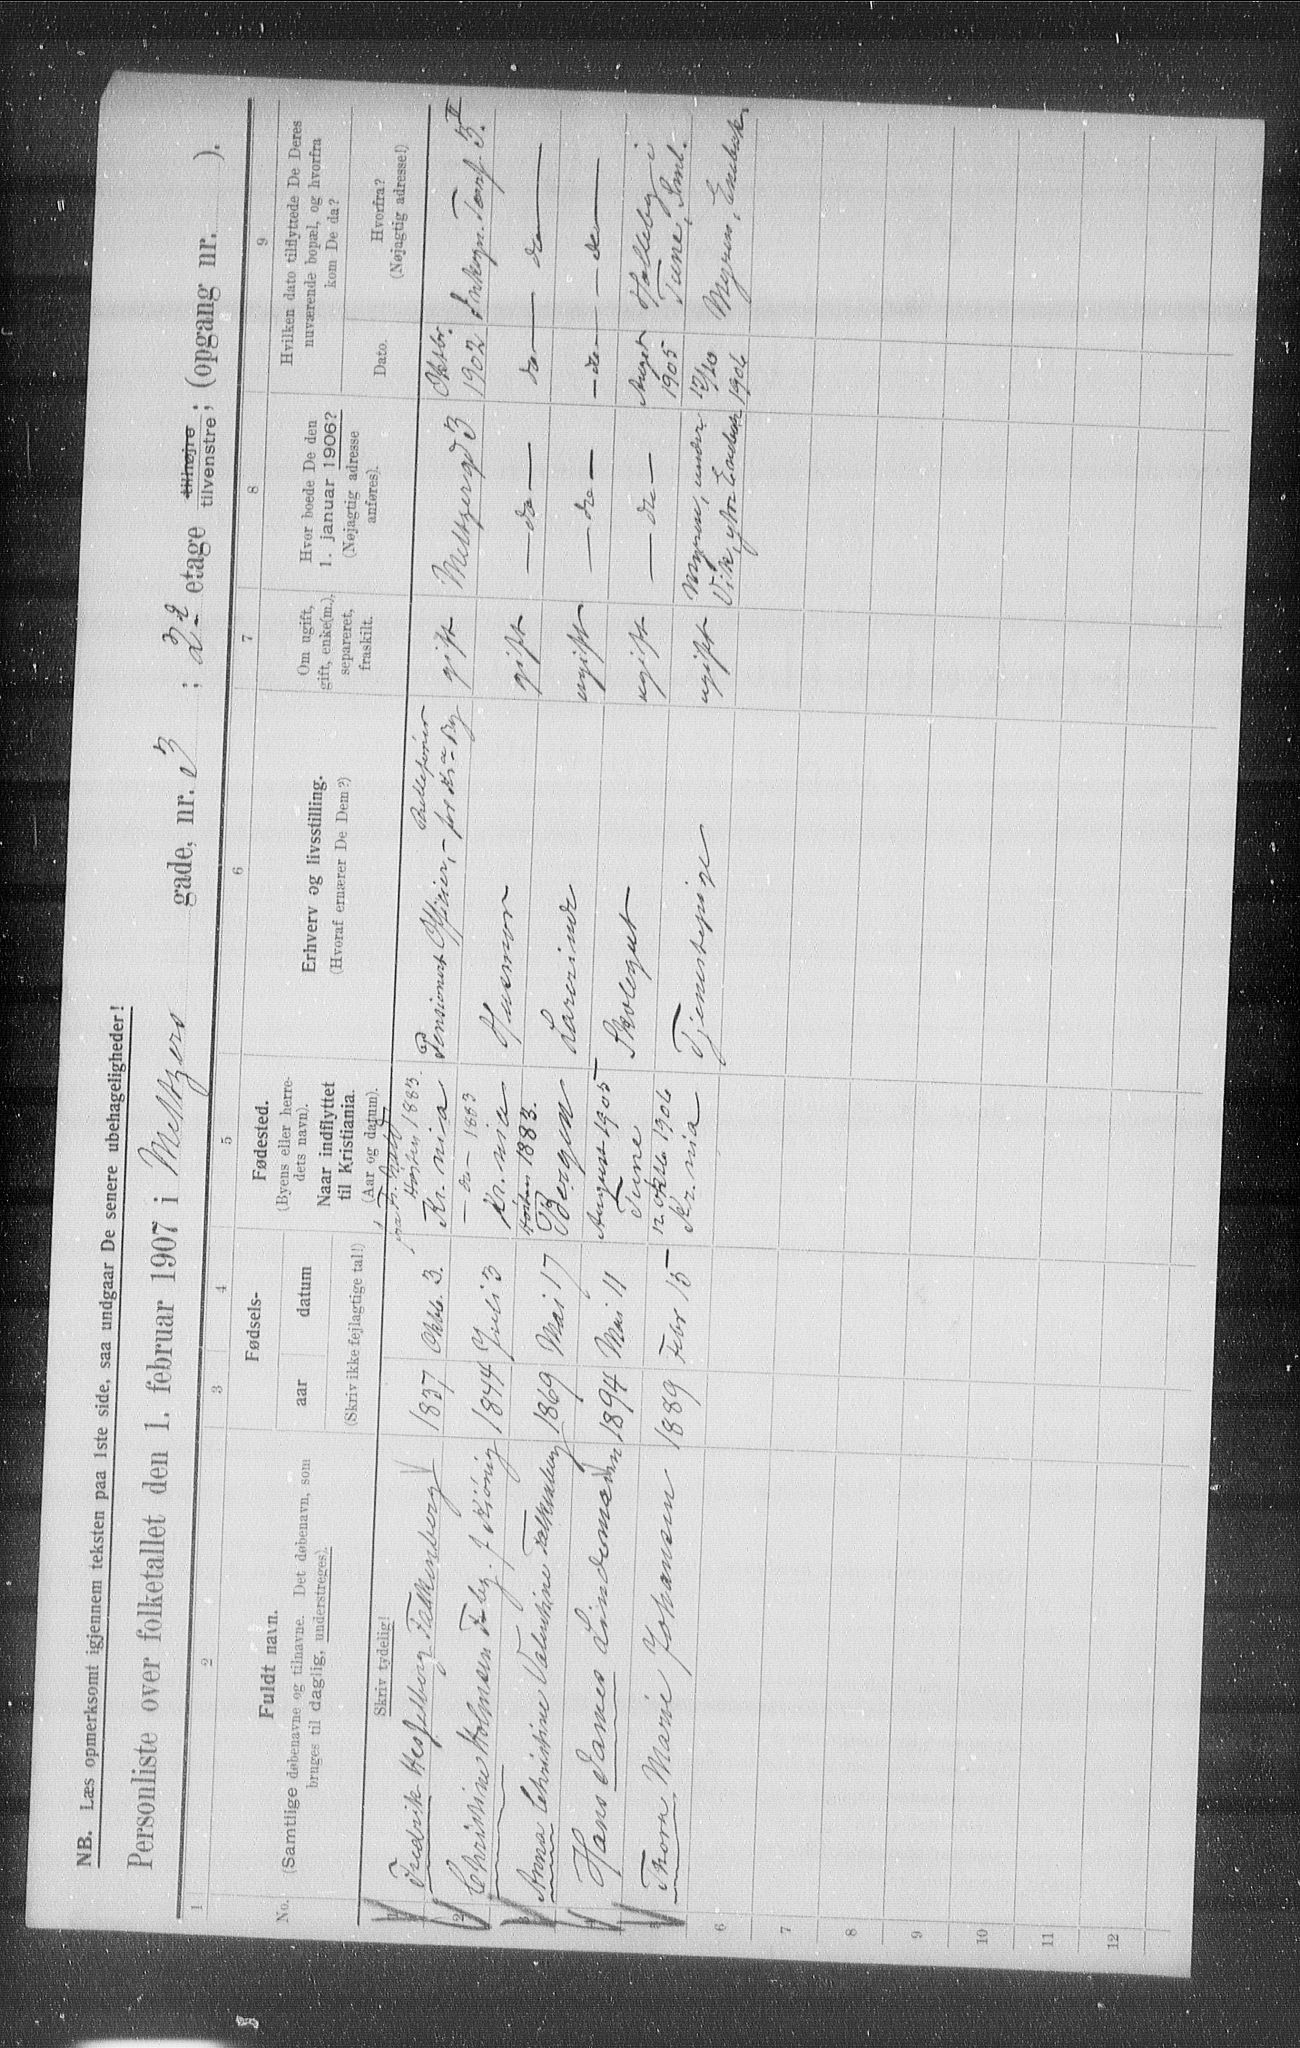 NB. Læs opmerksomt igjennem teksten paa 1ste side, saa undgaar De senere ubehageligheder!
Personliste over folketallet den 1. februar 1907 i Meltzers gade, nr. 3 ; 2d etage tilhøjre tilvenstre; (opgang nr. ).
1 2 3 4 5 6 7 8 9
No.
Fuldt navn.
(Samtlige døbenavne og tilnavne. Det døbenavn, som
bruges til daglig, understreges).
Skriv tydelig!
Fødsels-
aar datum
(Skriv ikke fejlagtige tal!)
Fødested.
(Byens eller herre-
dets navn).
Naar indflyttet
til Kristiania.
(Aar og datum).
Erhverv og livsstilling.
(Hvoraf ernærer De Dem?)
Om ugift,
gift, enke(m.),
separeret,
fraskilt.
Hvor boede De den
1. januar 1906?
(Nøjagtig adresse
anføres).
Hvilken dato tilflyttede De Deres
nuværende bopæl, og hvorfra
kom De da?
Dato.
Hvorfra?
(Nøjagtig adresse!)
Høsten 1883.
1 Fredrik Hesselberg Falkenberg 1837 Oktb. 3. Kr.nia Pensionert Officier, gift Meltzersgd 3 Oktbr. 1902
- do - 1883
2 Christine Holmsen Fbg. f Kiønig 1844 Juli 3 Kr.nia Husmor gift - do - do do
Høsten 1883.
3 Anna Christine Valentine Falkenberg 1869 Mai 17 Bergen Lærerinde ugift - do - - do - do
August 1905
4 Hans James Lindemæden 1894 Mai 11 Tune Skolegut ugift - do - August 1905 i Tune, Sml.
12 Oktb. 1906
5 Thora Marie Johansen 1889 Febr 15 Kr.nia Tjenestepige ugift Myren, under Vik, 12/10 1906 Myren,
6
7
8
9
10
11
12